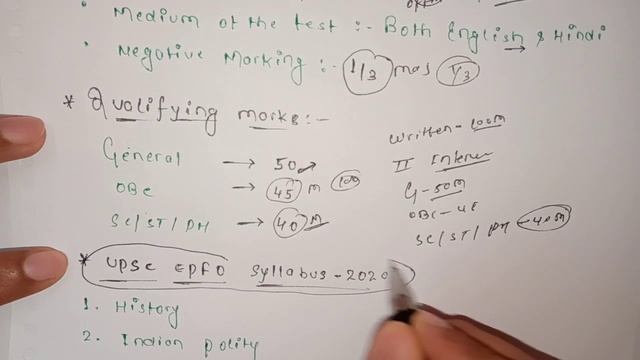 • Medium of the test :- Both English & Hindi
• Negative Marking :- 1/3 1/3
* Qualifying marks :-
General → 50
OBC → 45 m 100
SC/ST/PH → 40 M
Written - 100M
II
G - 50M
OBC - 45
SC/ST/PH - 40M
* UPSC EPFO Syllabus - 2020
1. History
2. Indian polity